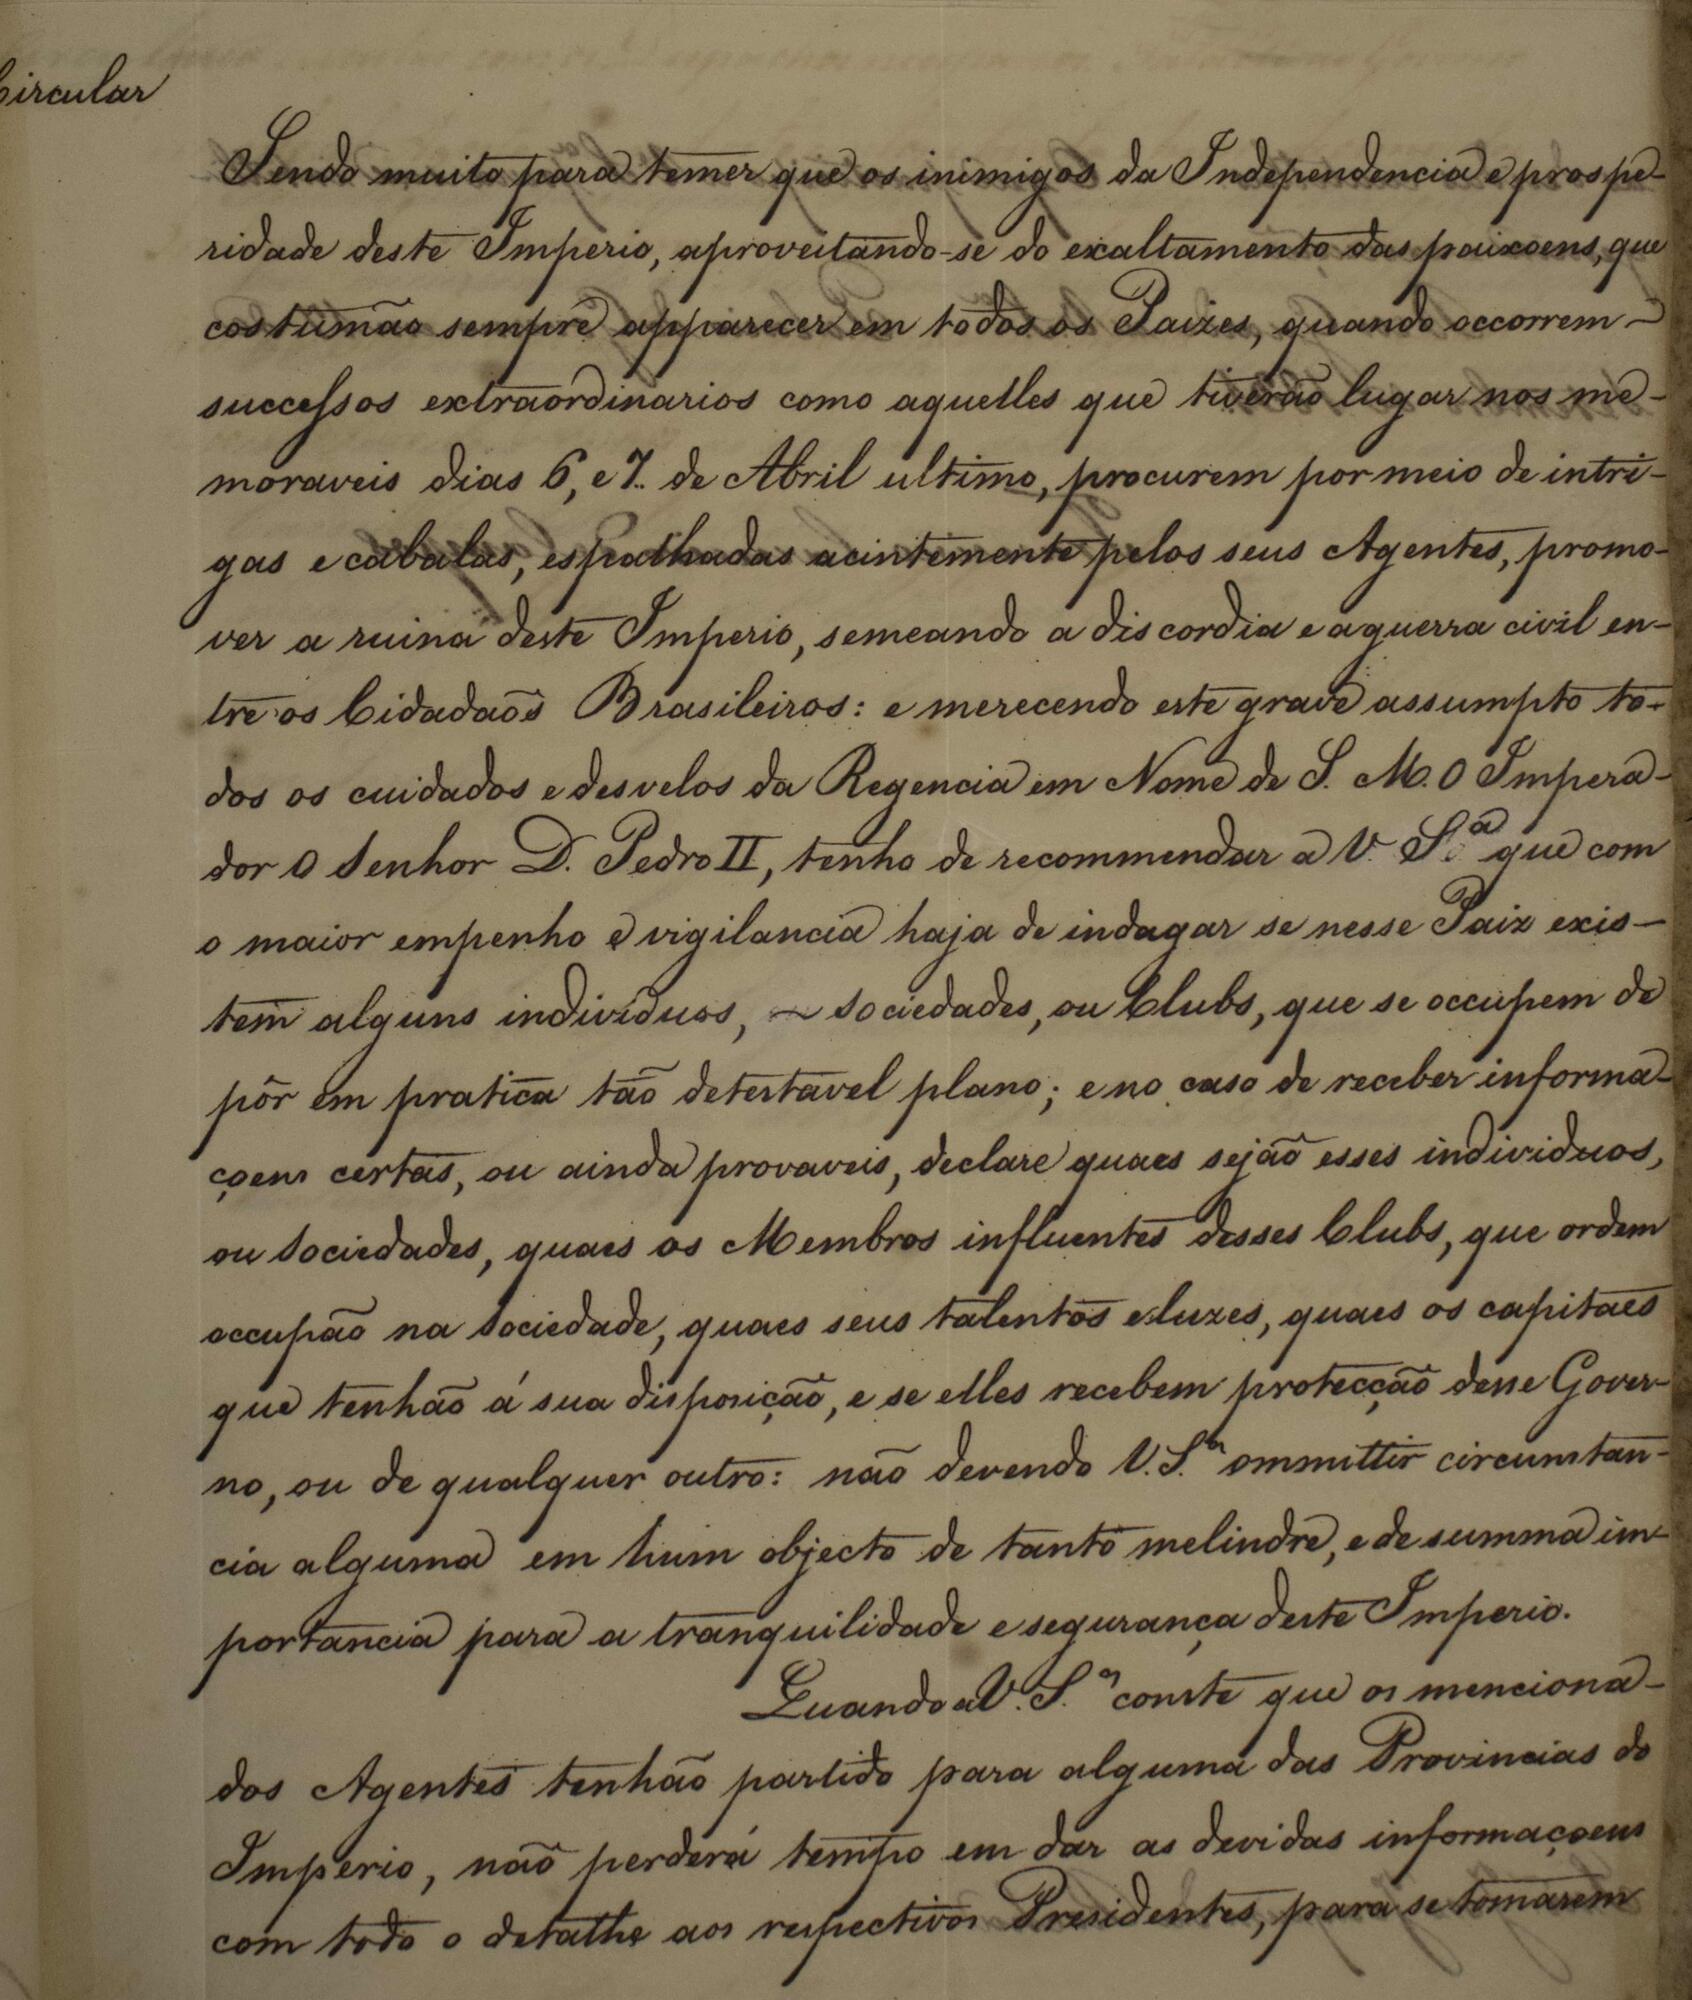 Circular
Sendo muito para temer que os inimigos da Independencia e prospe-
ridade deste Imperio, aproveitando-se do exaltamento das paixoens, que
costumão sempre apparecer em todos os Paizes, quando occorrem
successos extraordinarios como aquelles que tiverão lugar nos me-
moraveis dias 6, e 7. de Abril ultimo, procurem por meio de intri-
gas e cabalas, espalhadas acintemente pelos seus Agentes, promo-
ver a ruina deste Imperio, semeando a discordia e a guerra civil en-
tre os Cidadaõs Brasileiros: e merecendo este grave assumpto to-
dos os cuidados e desvelos da Regencia em Nome de S. M. O Impera-
dor O Senhor D. Pedro II, tenho de recommendar a V. S.ª que com
o maior empenho e vigilancia haja de indagar se nesse Paiz exis-
tem alguns individuos, sociedades, ou Clubs, que se occupem de
pôr em pratica tão detestavel plano; e no caso de receber informa-
çoens certas, ou ainda provaveis, declare quaes sejão esses individuos,
ou sociedades, quaes os Membros influentes desses Clubs, que ordem
occupão na sociedade, quaes seus talentos e luzes, quaes os capitaes
que tenhão á sua disposição, e se elles recebem protecção desse Gover-
no, ou de qualquer outro: não devendo V. S.ª ommittir circumstan-
cia alguma em hum objecto de tanto melindre, e de summa im-
portancia para a tranquilidade e segurança deste Imperio.
Quando a V. S.ª conste que os menciona-
dos Agentes tenhão partido para alguma das Provincias do
Imperio, não perderá tempo em dar as devidas informaçoens
com todo o detalhe aos respectivos Presidentes, para se tomarem